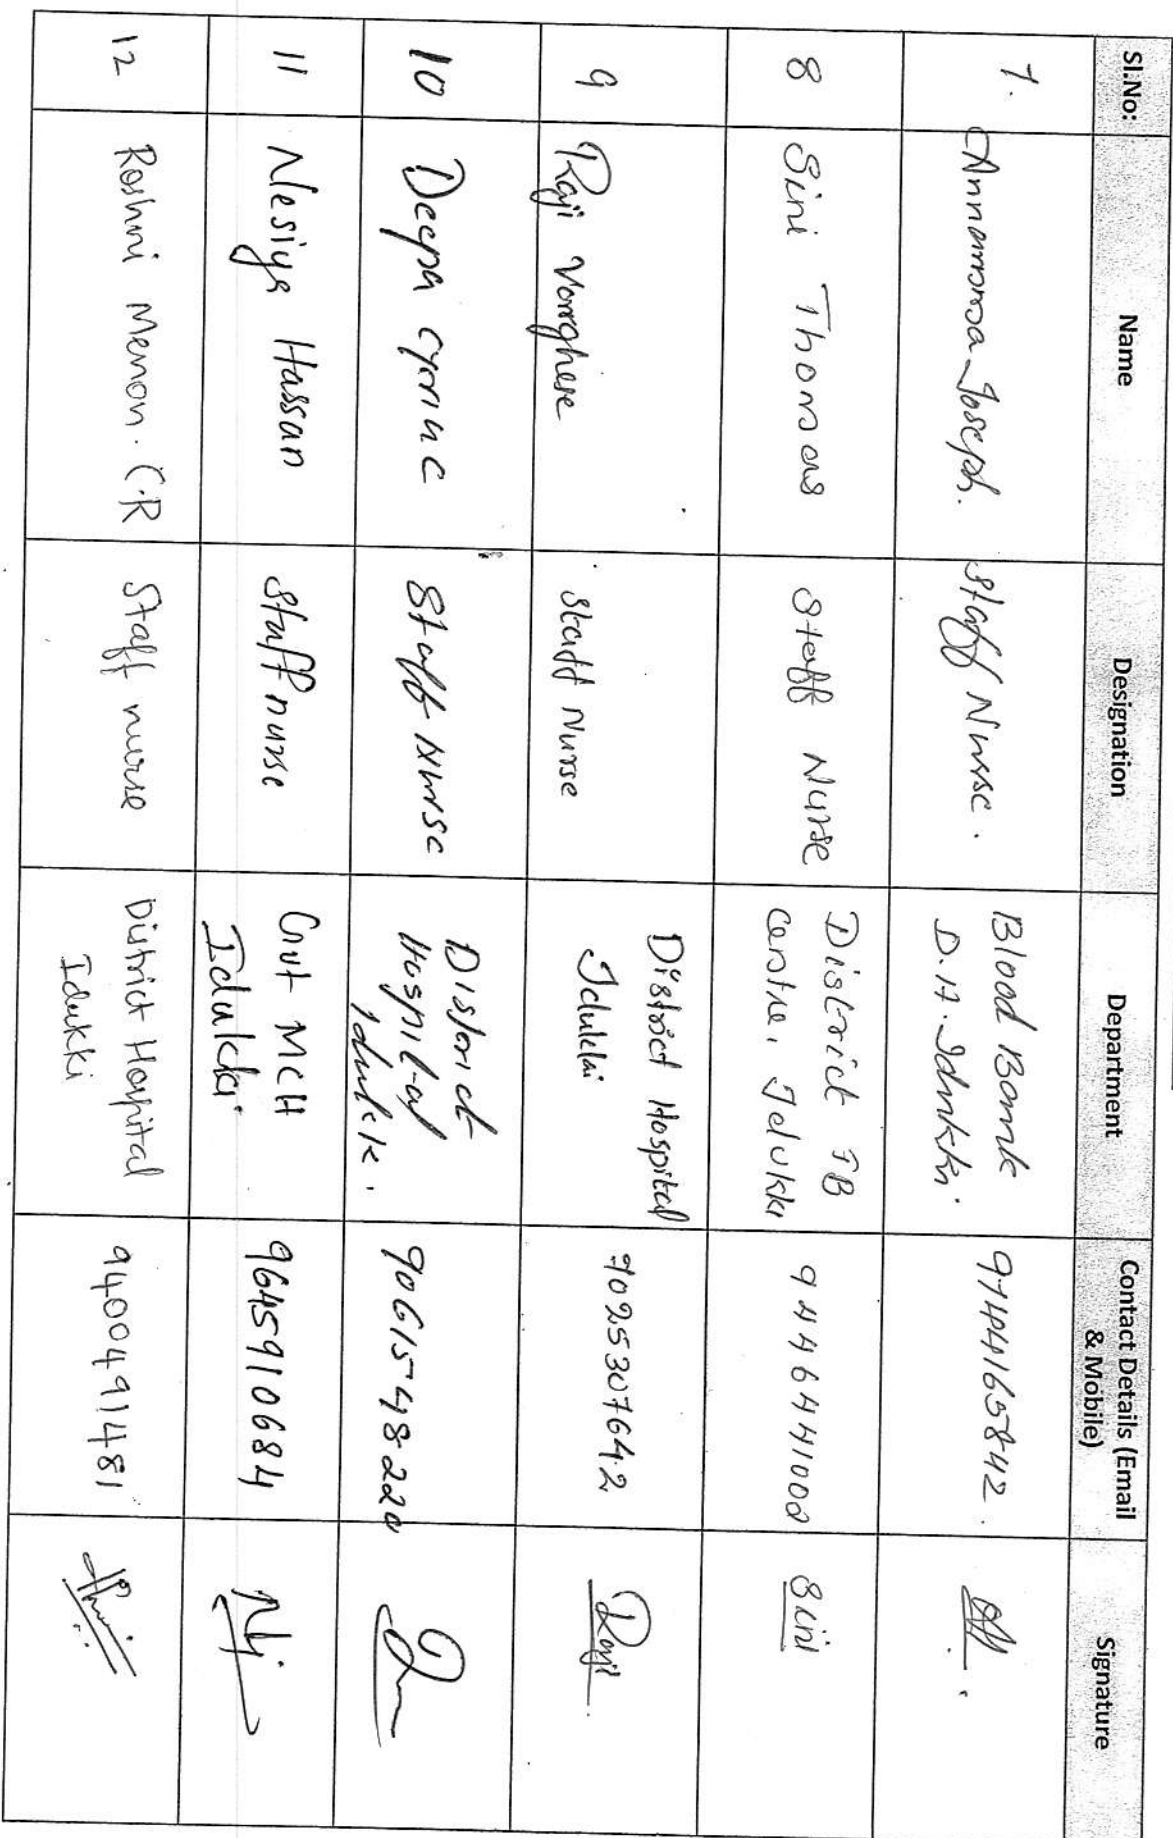 Sl.No: Name Designation Department Contact Details (Email & Mobile) Signature
7. Annamma Joseph. Staff Nurse. Blood Bank D.H. Idukki.
8 Sini Thomas Staff Nurse District TB Centre, Idukki Sini
9 Raji Varghese Staff Nurse District Hospital Idukki 9025307642 Raji
10 Deepa Staff Nurse District Hospital Idukki. 9061548220
11 Nesiya Hassan Staff nurse Gvt MCH Idukki 9645910684
12 Roshni Menon. C.R Staff nurse District Hospital Idukki 9400491481